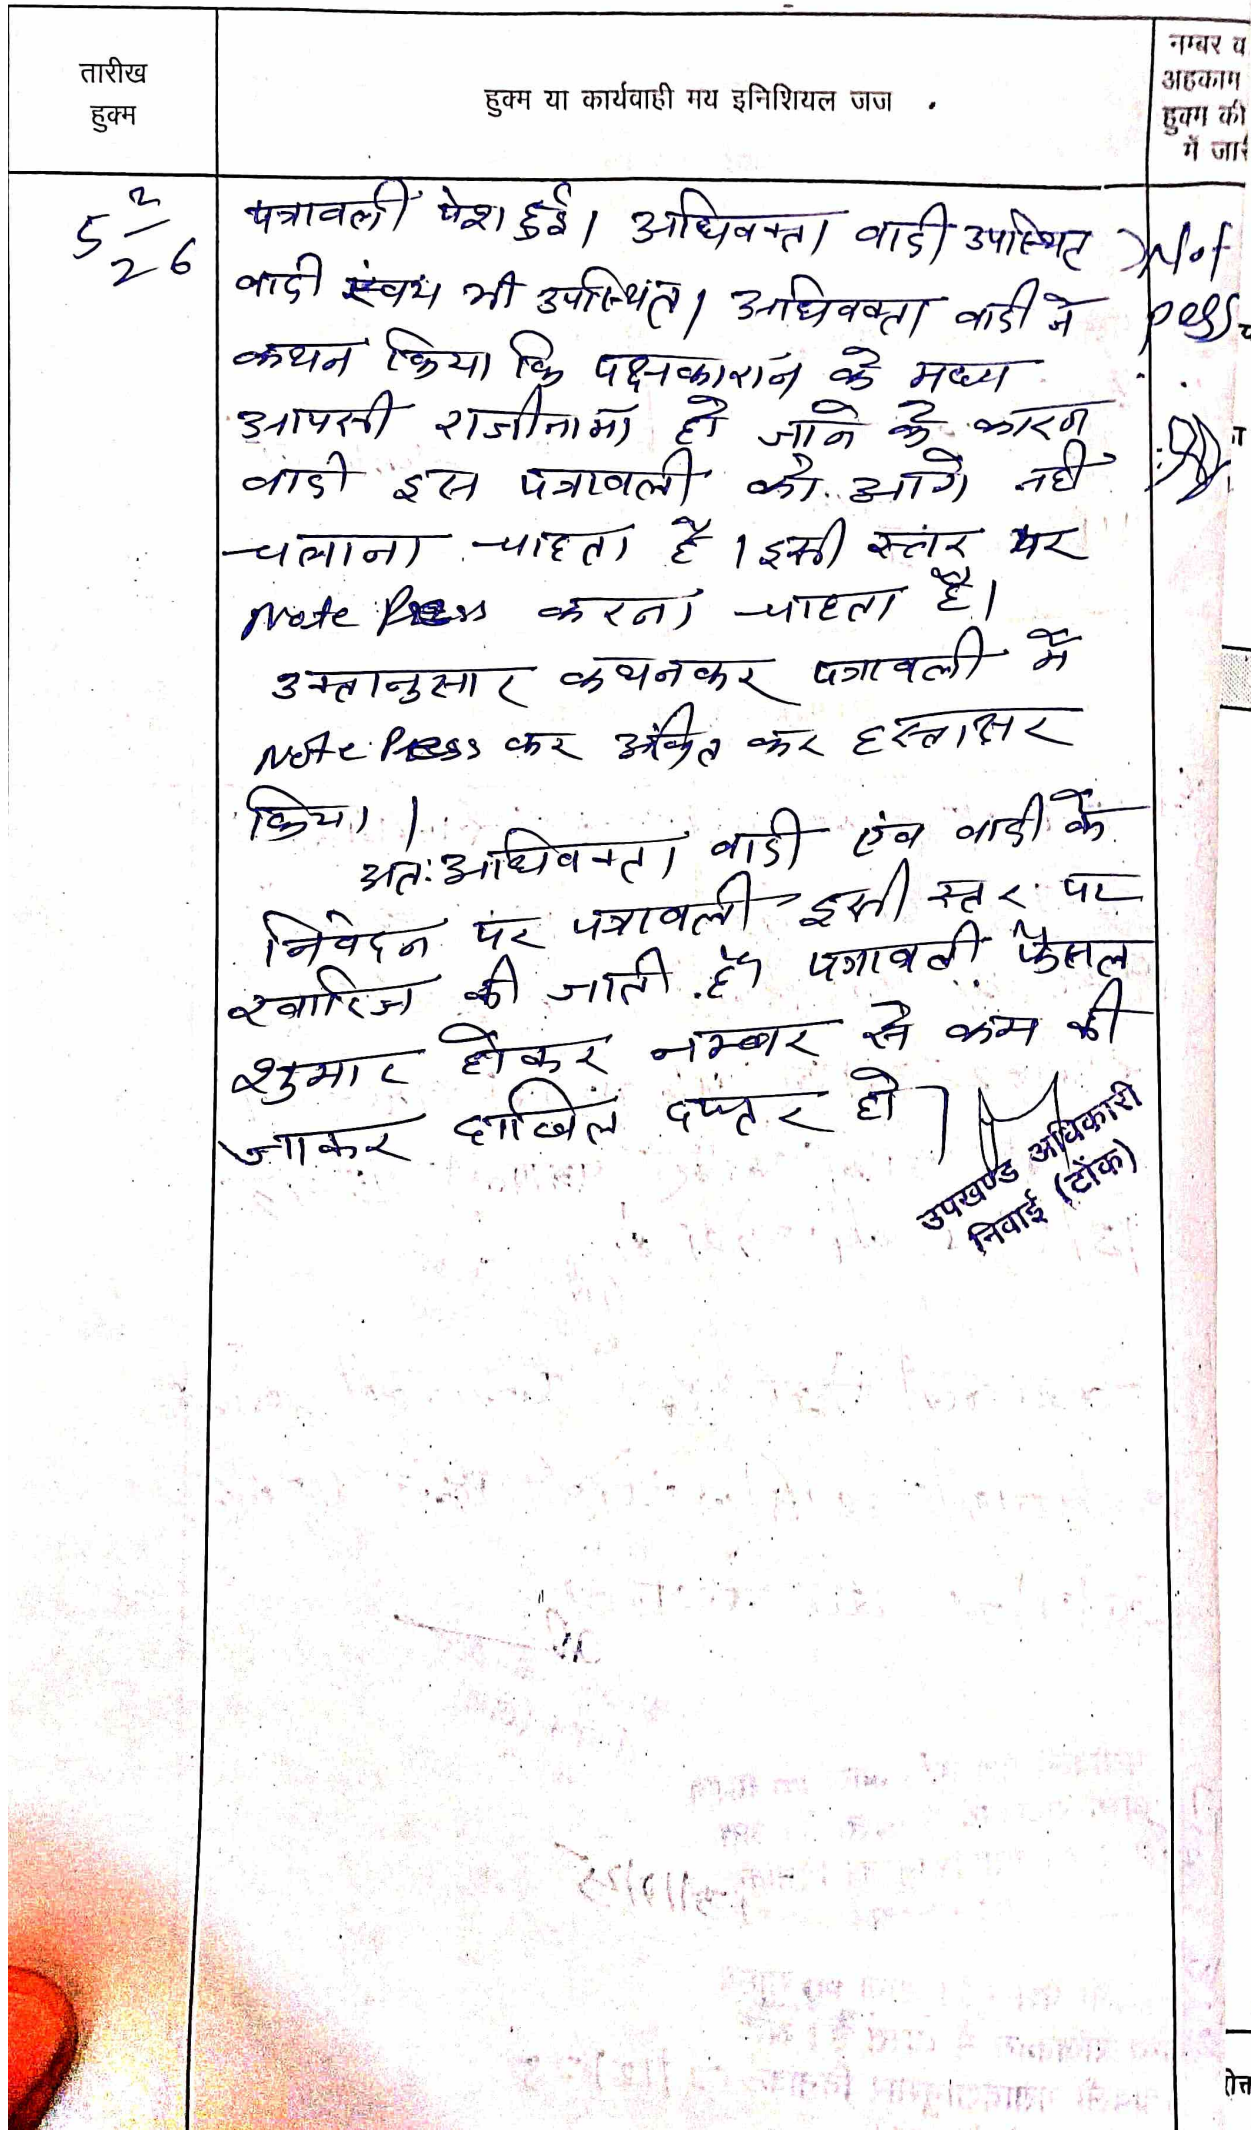 तारीख
हुक्म
हुक्म या कार्यवाही मय इनिशियल जज
नम्बर व
अहकाम
हुक्म की
में जारी
5 2/26
पत्रावली पेश हुई। अधिवक्ता वादी उपस्थित
वादी स्वंय भी उपस्थित। अधिवक्ता वादी ने
कथन किया कि पक्षकारान के मध्य
आपसी राजीनामा हो जाने के कारण
वादी इस पत्रावली को आगे नही
चलाना चाहता है। इसी स्तर पर
Note Press करना चाहता है।
उक्तानुसार कथनकर पत्रावली में
Note Press कर अंकित कर हस्ताक्षर
किया।
अतः अधिवक्ता वादी एंव वादी के
निवेदन पर पत्रावली इसी स्तर पर
खारिज की जाती है। पत्रावली फैसल
शुमार होकर नम्बर से कम की
जाकर दाखिल दफ्तर हो।
उपखण्ड अधिकारी
निवाई (टोंक)
Not